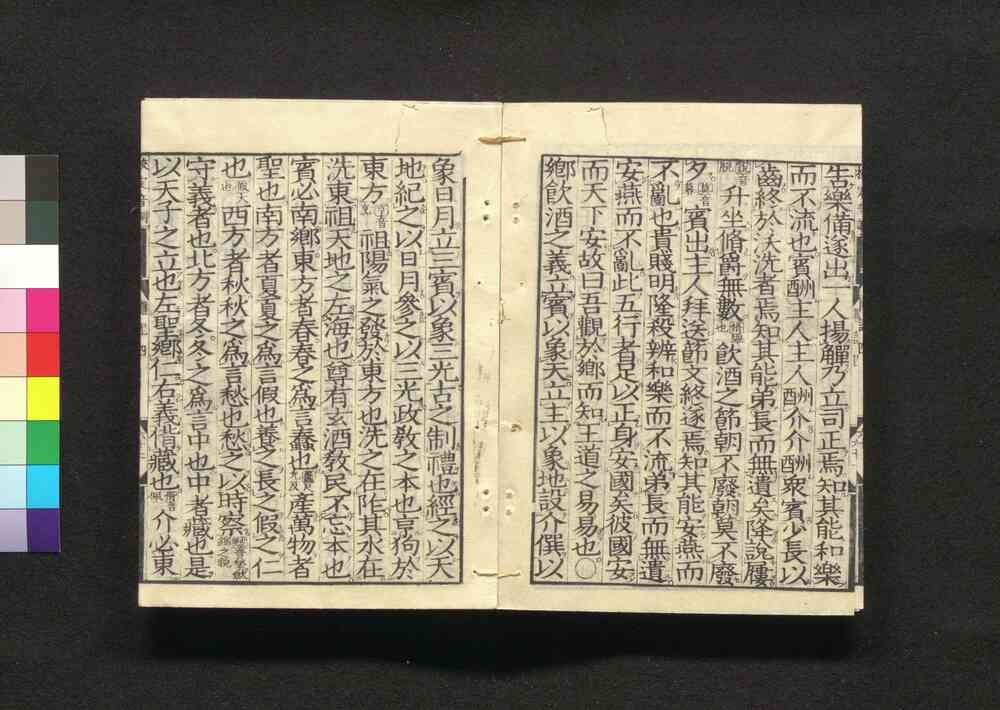 生樂備遂出一人揚觶乃立司正焉知其能和樂
而不流也賓酬主人主人酬介介酬衆賓少長以
齒終於沃洗者焉知其能弟長而無遺矣降說屨
說音脫升坐脩爵無數飲酒之節朝不廢朝莫不廢
夕莫音暮賓出主人拜送節文終遂焉知其能安燕而
不亂也貴賤明隆殺辨和樂而不流弟長而無遺
安燕而不亂此五行者足以正身安國矣彼國安
而天下安故曰吾觀於鄉而知王道之易易也〇
鄉飲酒之義立賓以象天立主以象地設介僎以
象日月立三賓以象三光古之制禮也經之以天
地紀之以日月參之以三光政敎之本也亨狗於
東方祖陽氣之發於東方也洗之在阼其水在
洗東祖天地之左海也尊有玄酒敎民不忘本也
賓必南鄉東方者春春之爲言蠢也產萬物者
聖也南方者夏夏之爲言假也養之長之假之仁
也假大也西方者秋秋之爲言愁也愁之以時察
守義者也北方者冬冬之爲言中也中者藏也是
以天子之立也左聖鄉仁右義偝藏也偝音佩介必東